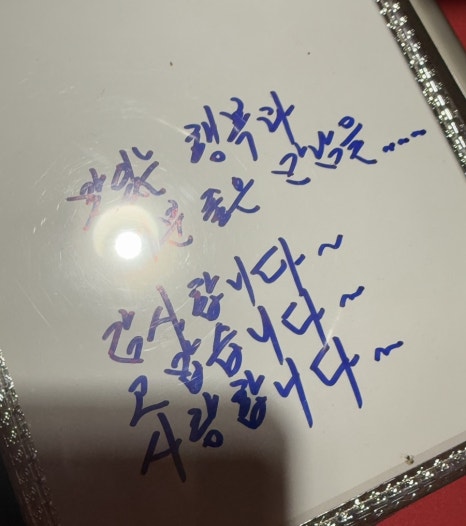 행복과
큰 좋은 기억을----
감사합니다~
고맙습니다~
사랑합니다~